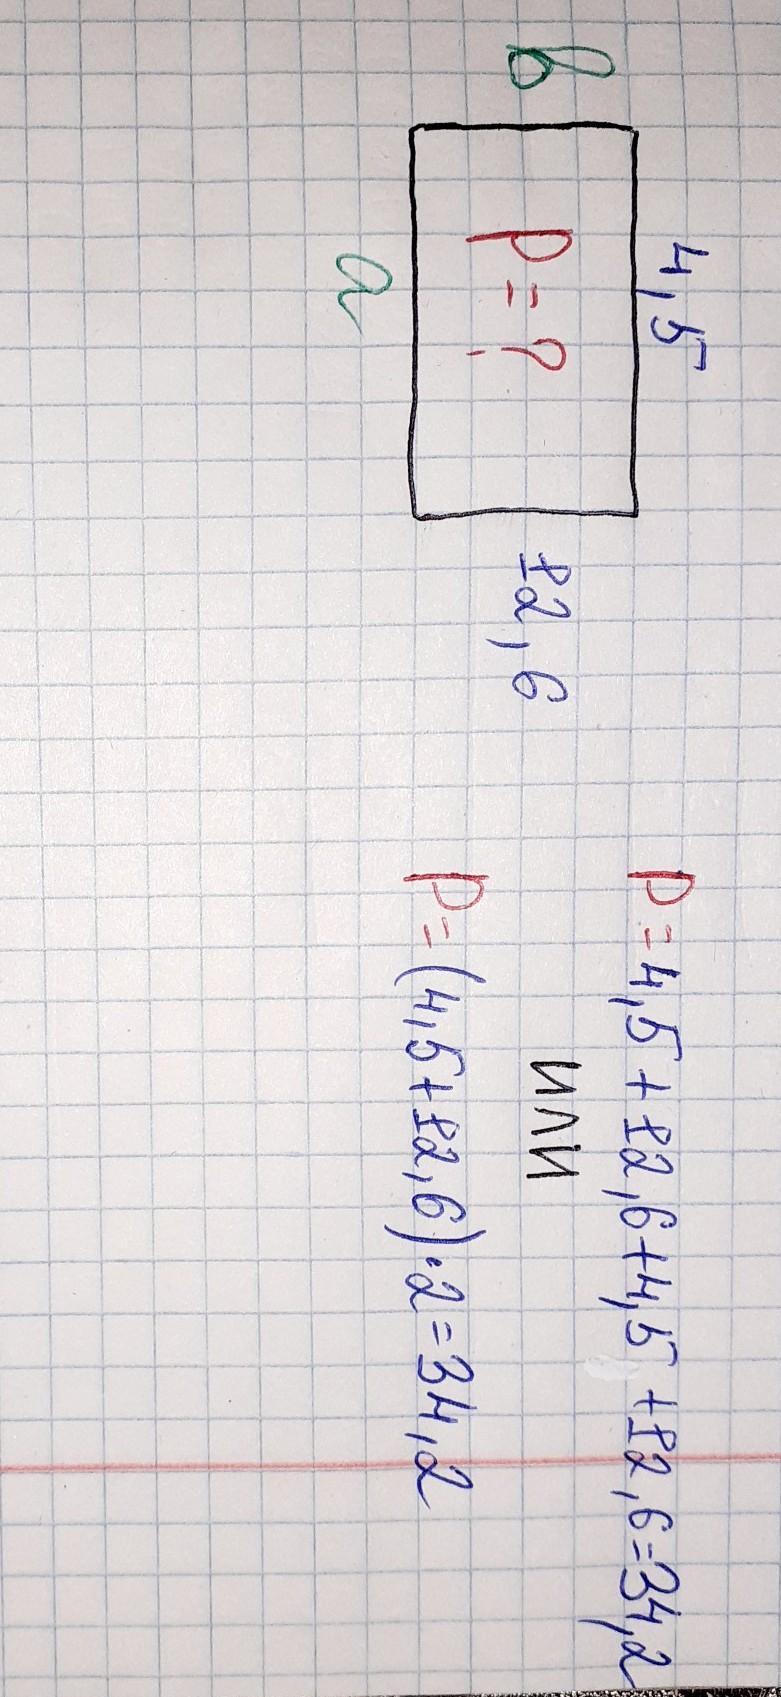 4,5
в
P=?
12,6
a
P=4,5+12,6+4,5+12,6=34,2
или
P=(4,5+12,6)·2=34,2